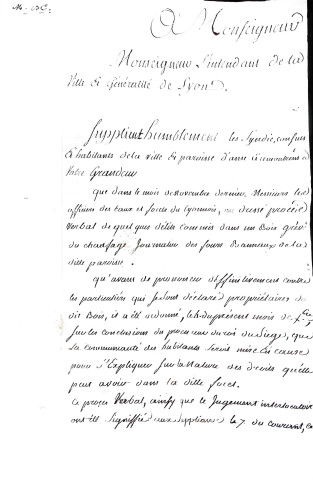 A Monseigneur
Monseigneur L'intendant de la
Ville & Généralité de Lyon
Supplient humblement les Syndic, consuls
& habitants de la ville & paroisse d'anse à remontrer à
Votre Grandeur
que dans le mois de novembre dernier, Messieurs les
officiers des Eaux et forêts du Lyonnois, ont dressé procès
Verbal de quelques délits commis dans un Bois grévé
du chaufage Journalier des fours Bannaux de la
ditte paroisse.
qu'avant de prononcer deffinitivement contre
les particuliers qui se sont déclaré propriétaires du
dit Bois, il a été ordonné, le du présent mois de
sur les conclusions du procureur du roi du Siege, que
la communauté des habitants seroit mise en cause
pour s'Expliquer sur la Nature des droits qu'elle
peut avoir dans la ditte forest.
Ce procès Verbal, ainsy que le Jugement interlocutoire
ont été signiffié aux suppliants le 7. du courant,